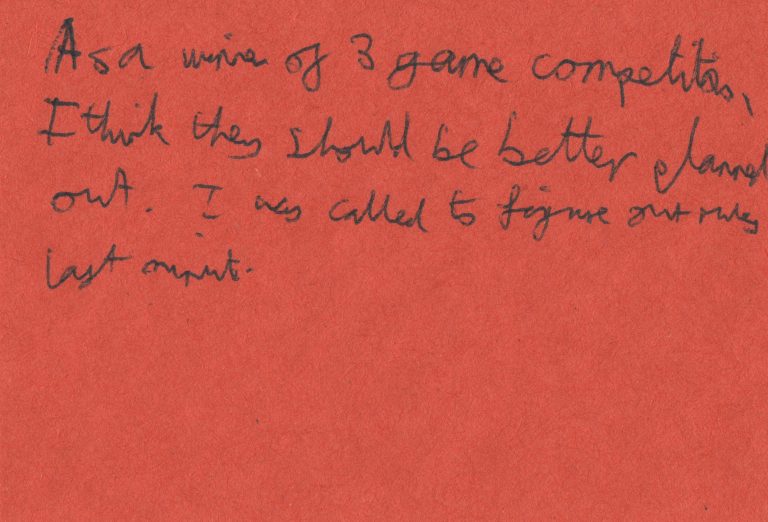 As a winner of 3 game competitions,
I think they should be better planned
out. I was called to figure out rules
last minute.